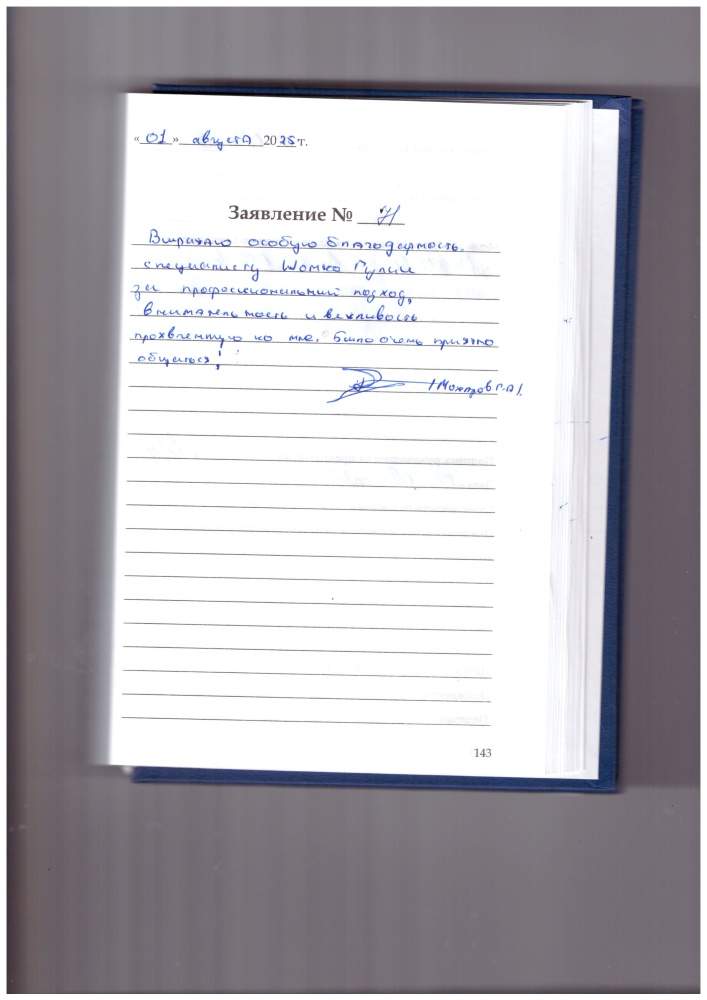 «01» августа 2025 г.
Заявление № 71
Выражаю особую благодарность
специалисту Шомко Гулии
за профессиональный подход,
внимательность и вежливость
проявленную ко мне. Было очень приятно
общаться!
143